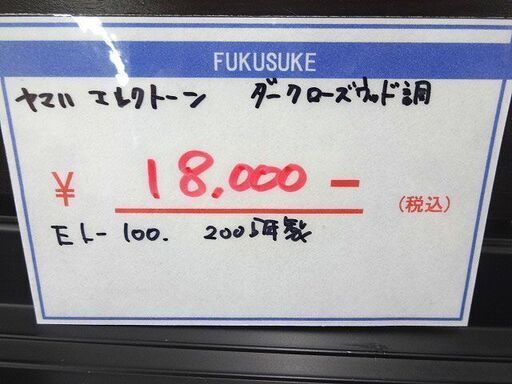 FUKUSUKE
ヤマハ エレクトーン ダークローズウッド調
¥ 18,000 - (税込)
EL-100. 2005年製